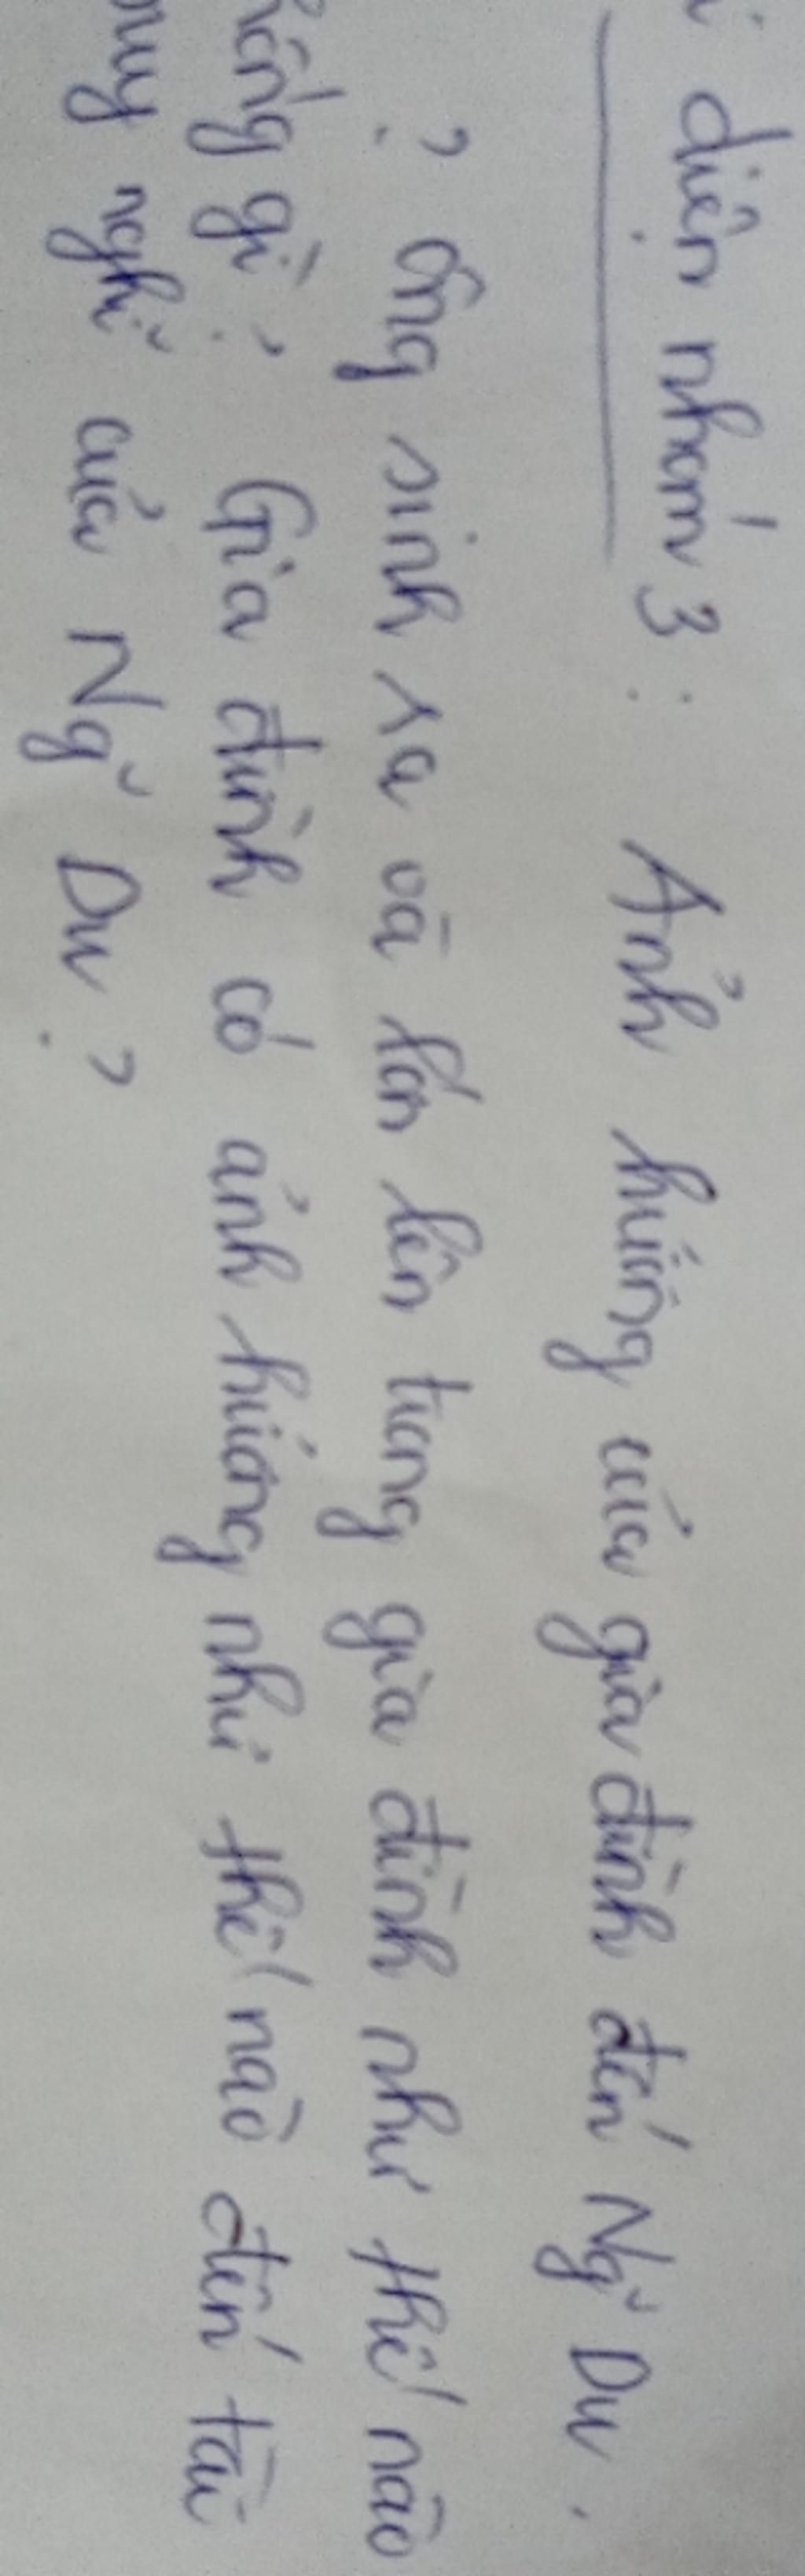 diện nhóm 3: Ảnh hưởng của gia đình đến Ng~ Du.
? Ông sinh ra và lớn lên trong gia đình như thế nào
gì? Gia đình có ảnh hưởng như thế nào đến tài
nghĩ của Ng~ Du?